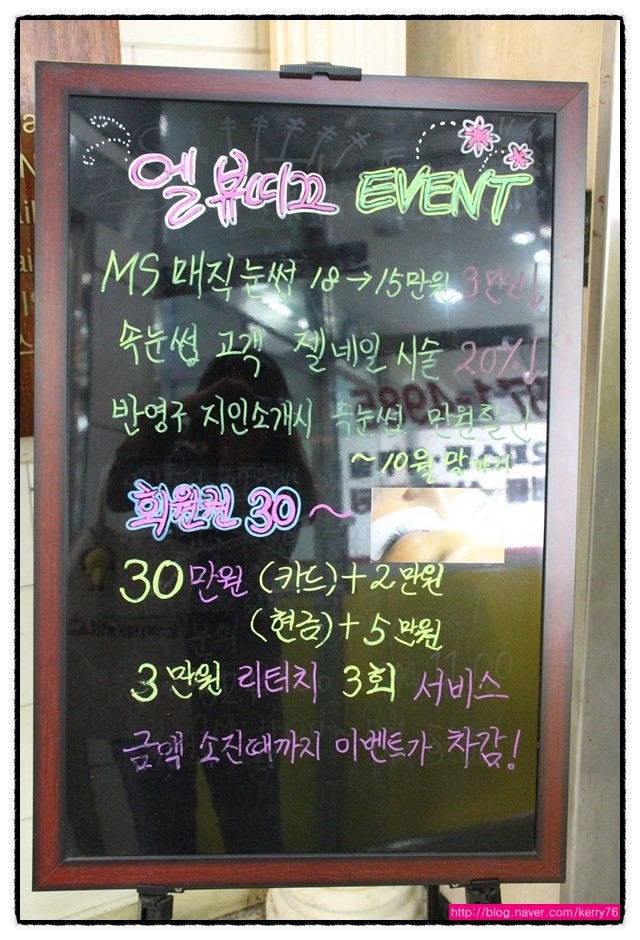 엘뷰띠끄 EVENT
MS 매직눈썹 18→15만원 3만원↓
속눈썹 고객 젤네일 시술 20%↓
반영구 지인소개시 속눈썹 만원할인
~10월 말까지
회원권 30~
30만원 (카드)+2만원
(현금)+5만원
3만원 리터치 3회 서비스
금액 소진때까지 이벤트가 차감!
http://blog.naver.com/kerry76